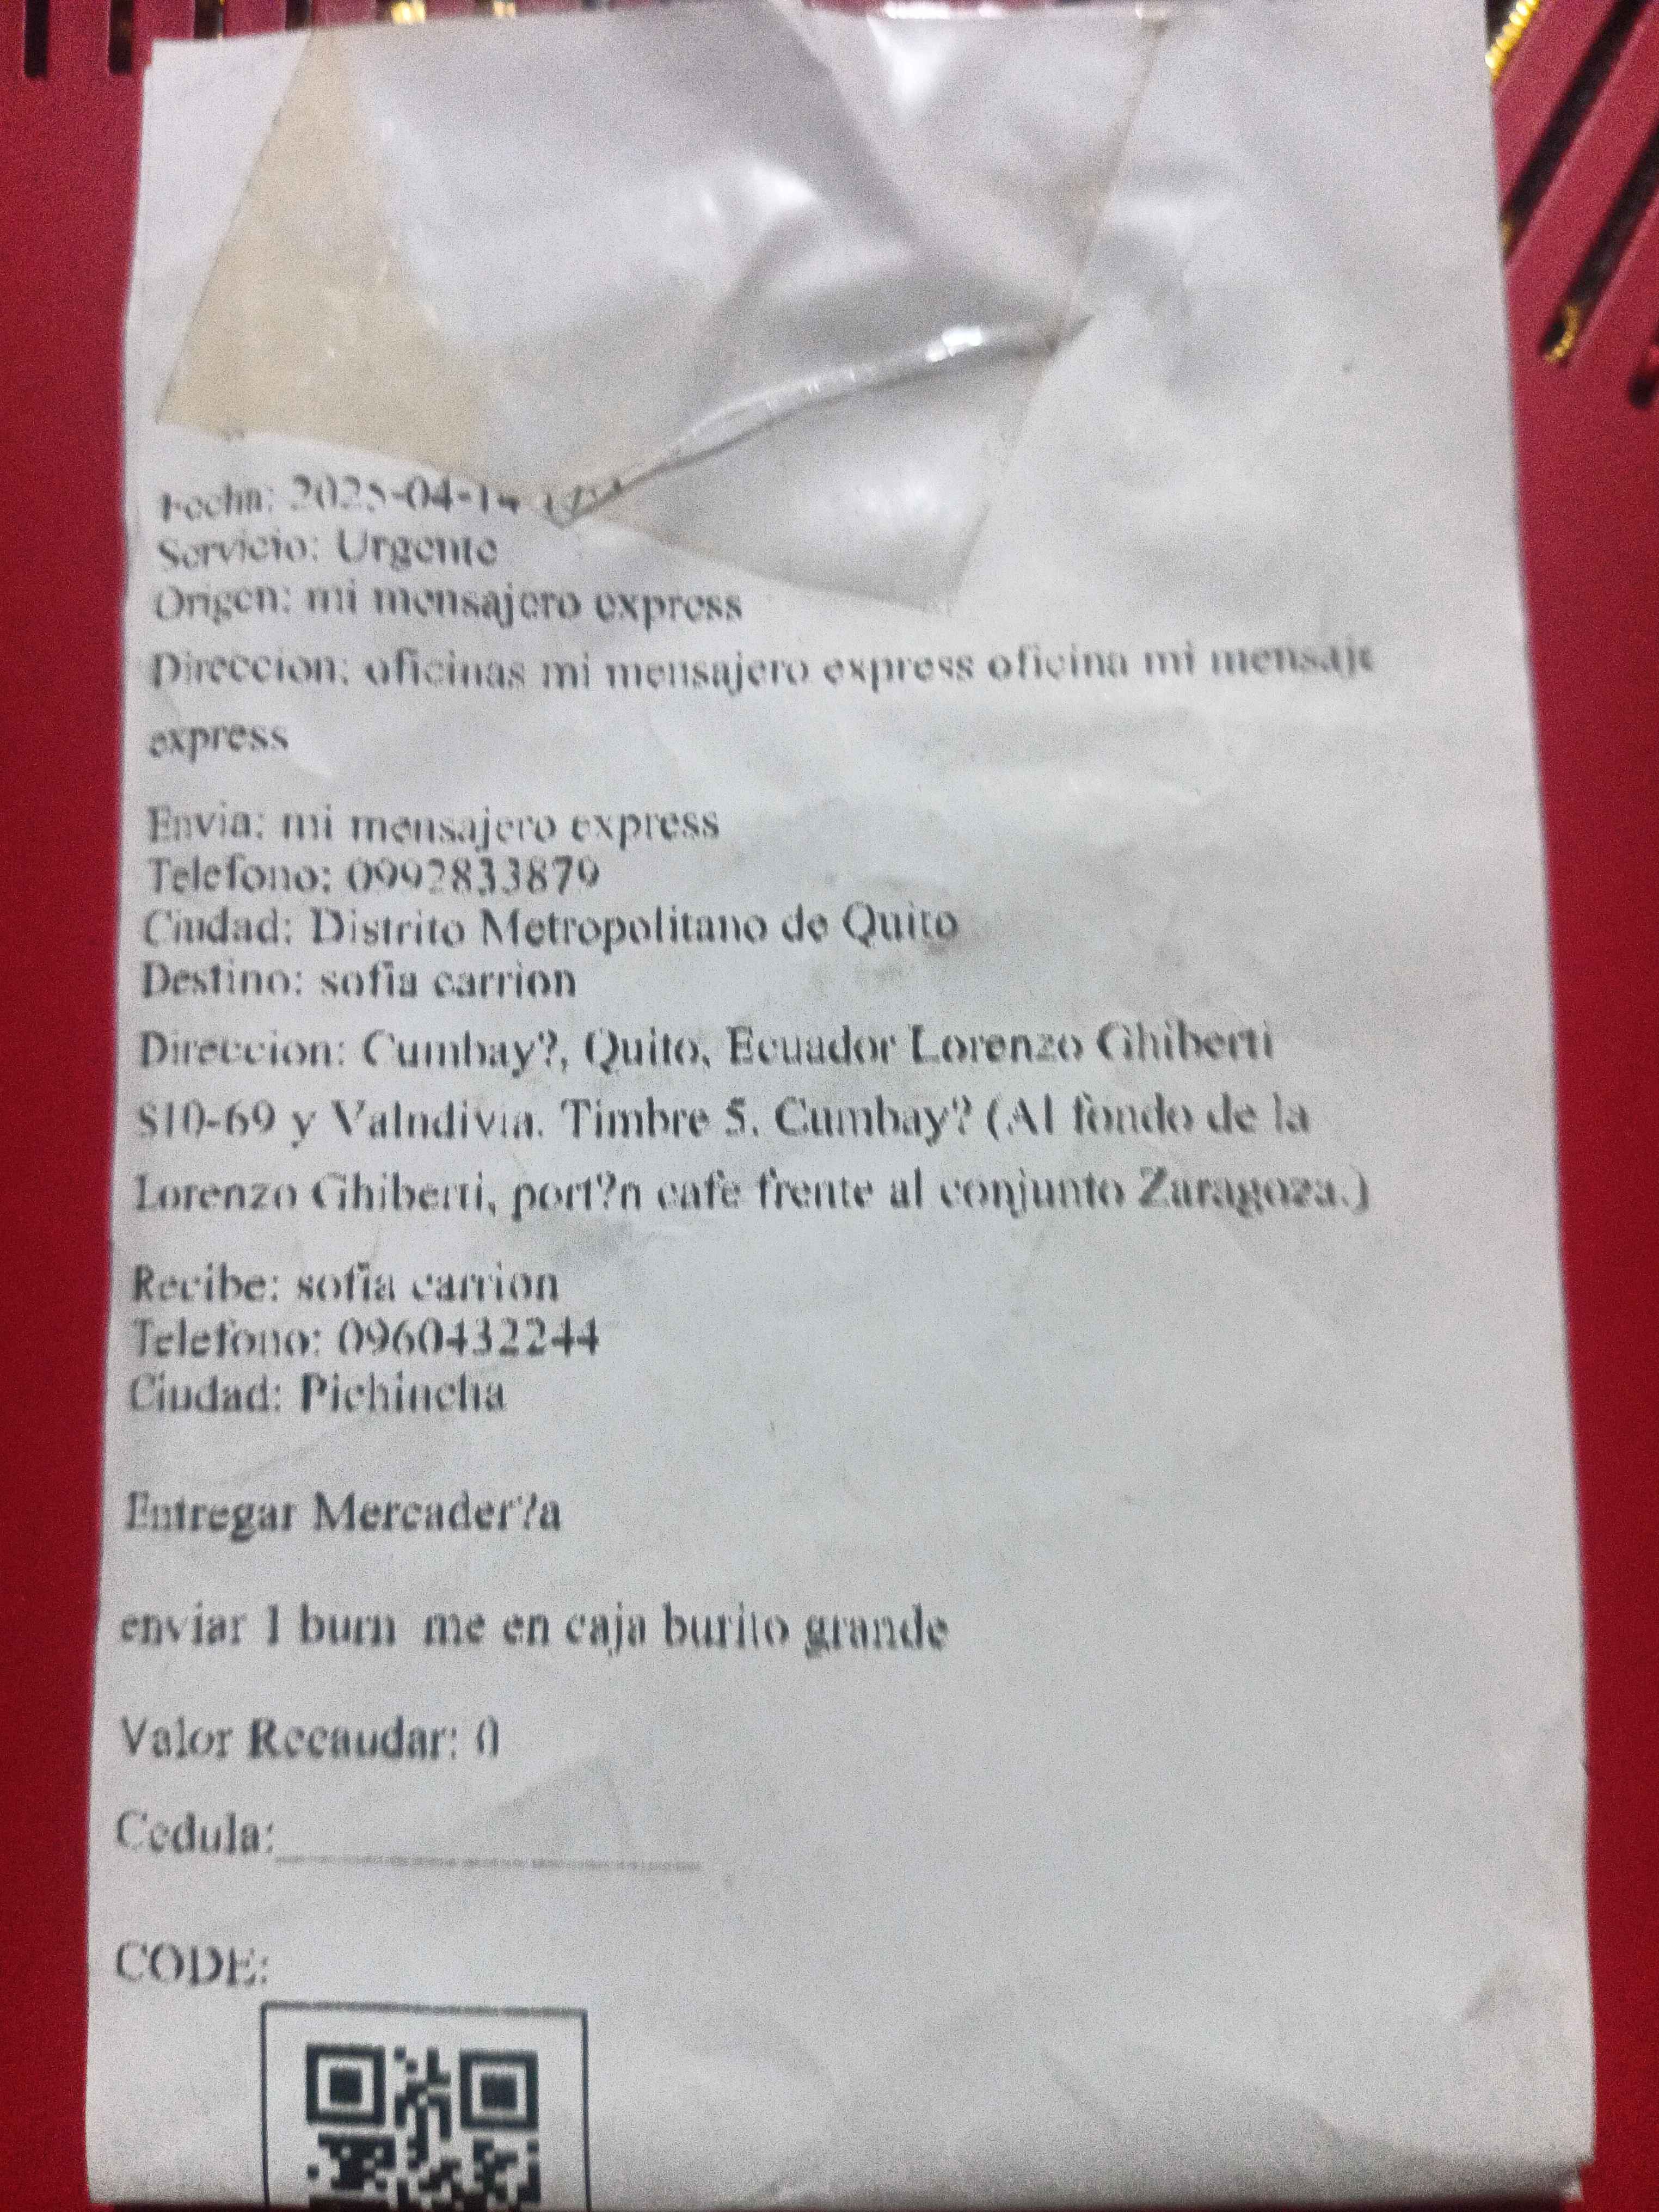 Fecha: 2025-04-14
Servicio: Urgente
Origen: mi mensajero express
Direccion: oficinas mi mensajero express oficina mi mensaje
express
Envia: mi mensajero express
Telefono: 0992833879
Ciudad: Distrito Metropolitano de Quito
Destino: sofia carrion
Direccion: Cumbay?, Quito, Ecuador Lorenzo Ghiberti
S10-69 y Valndivia. Timbre 5. Cumbay? (Al fondo de la
Lorenzo Ghiberti, port?n cafe frente al conjunto Zaragoza.)
Recibe: sofia carrion
Telefono: 0960432244
Ciudad: Pichincha
Entregar Mercader?a
enviar 1 burn me en caja burito grande
Valor Recaudar: 0
Cedula:
CODE: